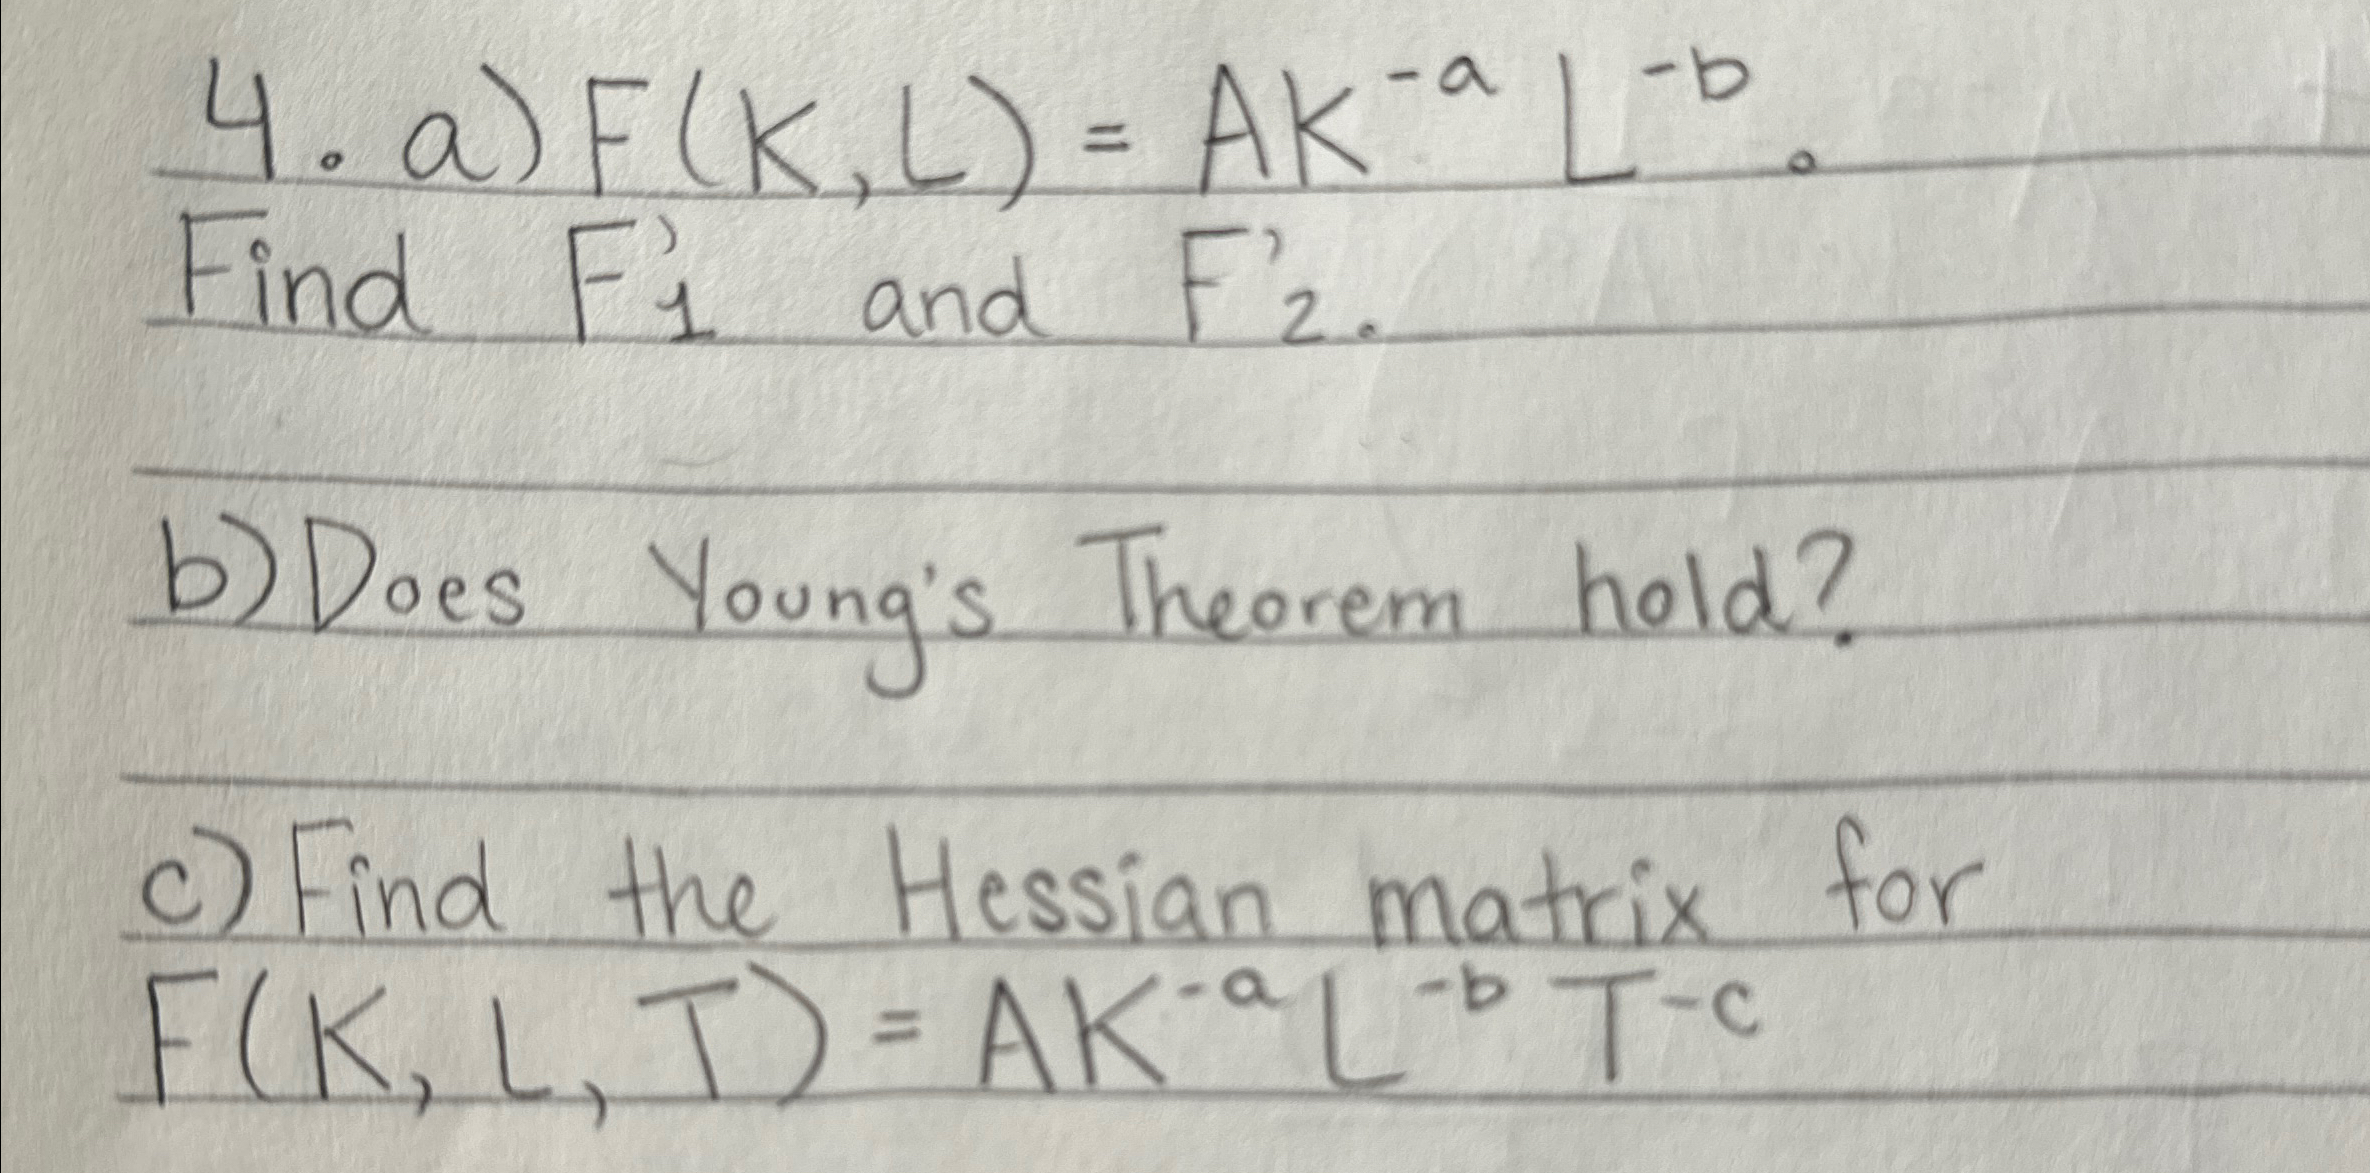 4. a) F(K, L) = AK^-a L^-b.
Find F'1 and F'2.
b) Does Young's Theorem hold?
c) Find the Hessian matrix for
F(K, L, T) = AK^-a L^-b T^-c